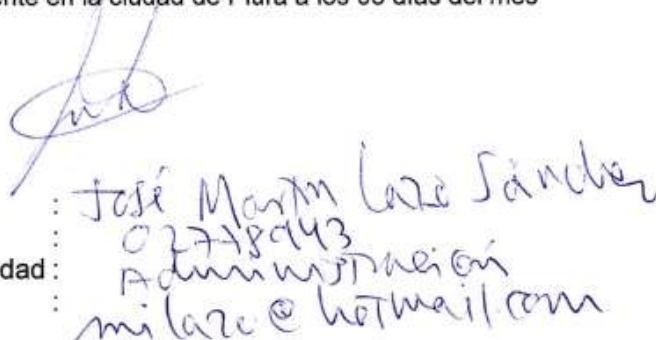 en la ciudad de Piura a los 05 días del mes
: José Martín Lazo Sánchez
:
dad : Administración
: milazo@hotmail.com